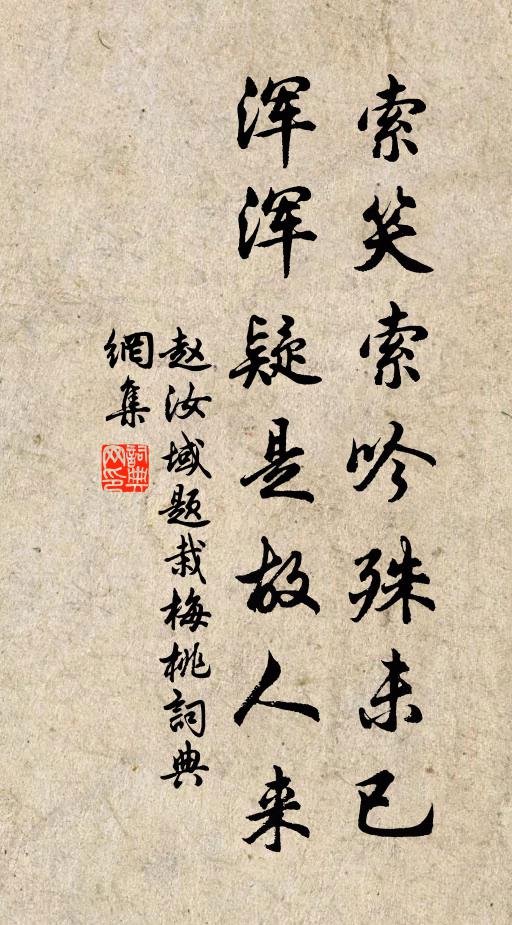 索笑索吟殊未已
浑浑疑是故人来
赵汝域题栽梅桃詞典
網集
詞典
网印